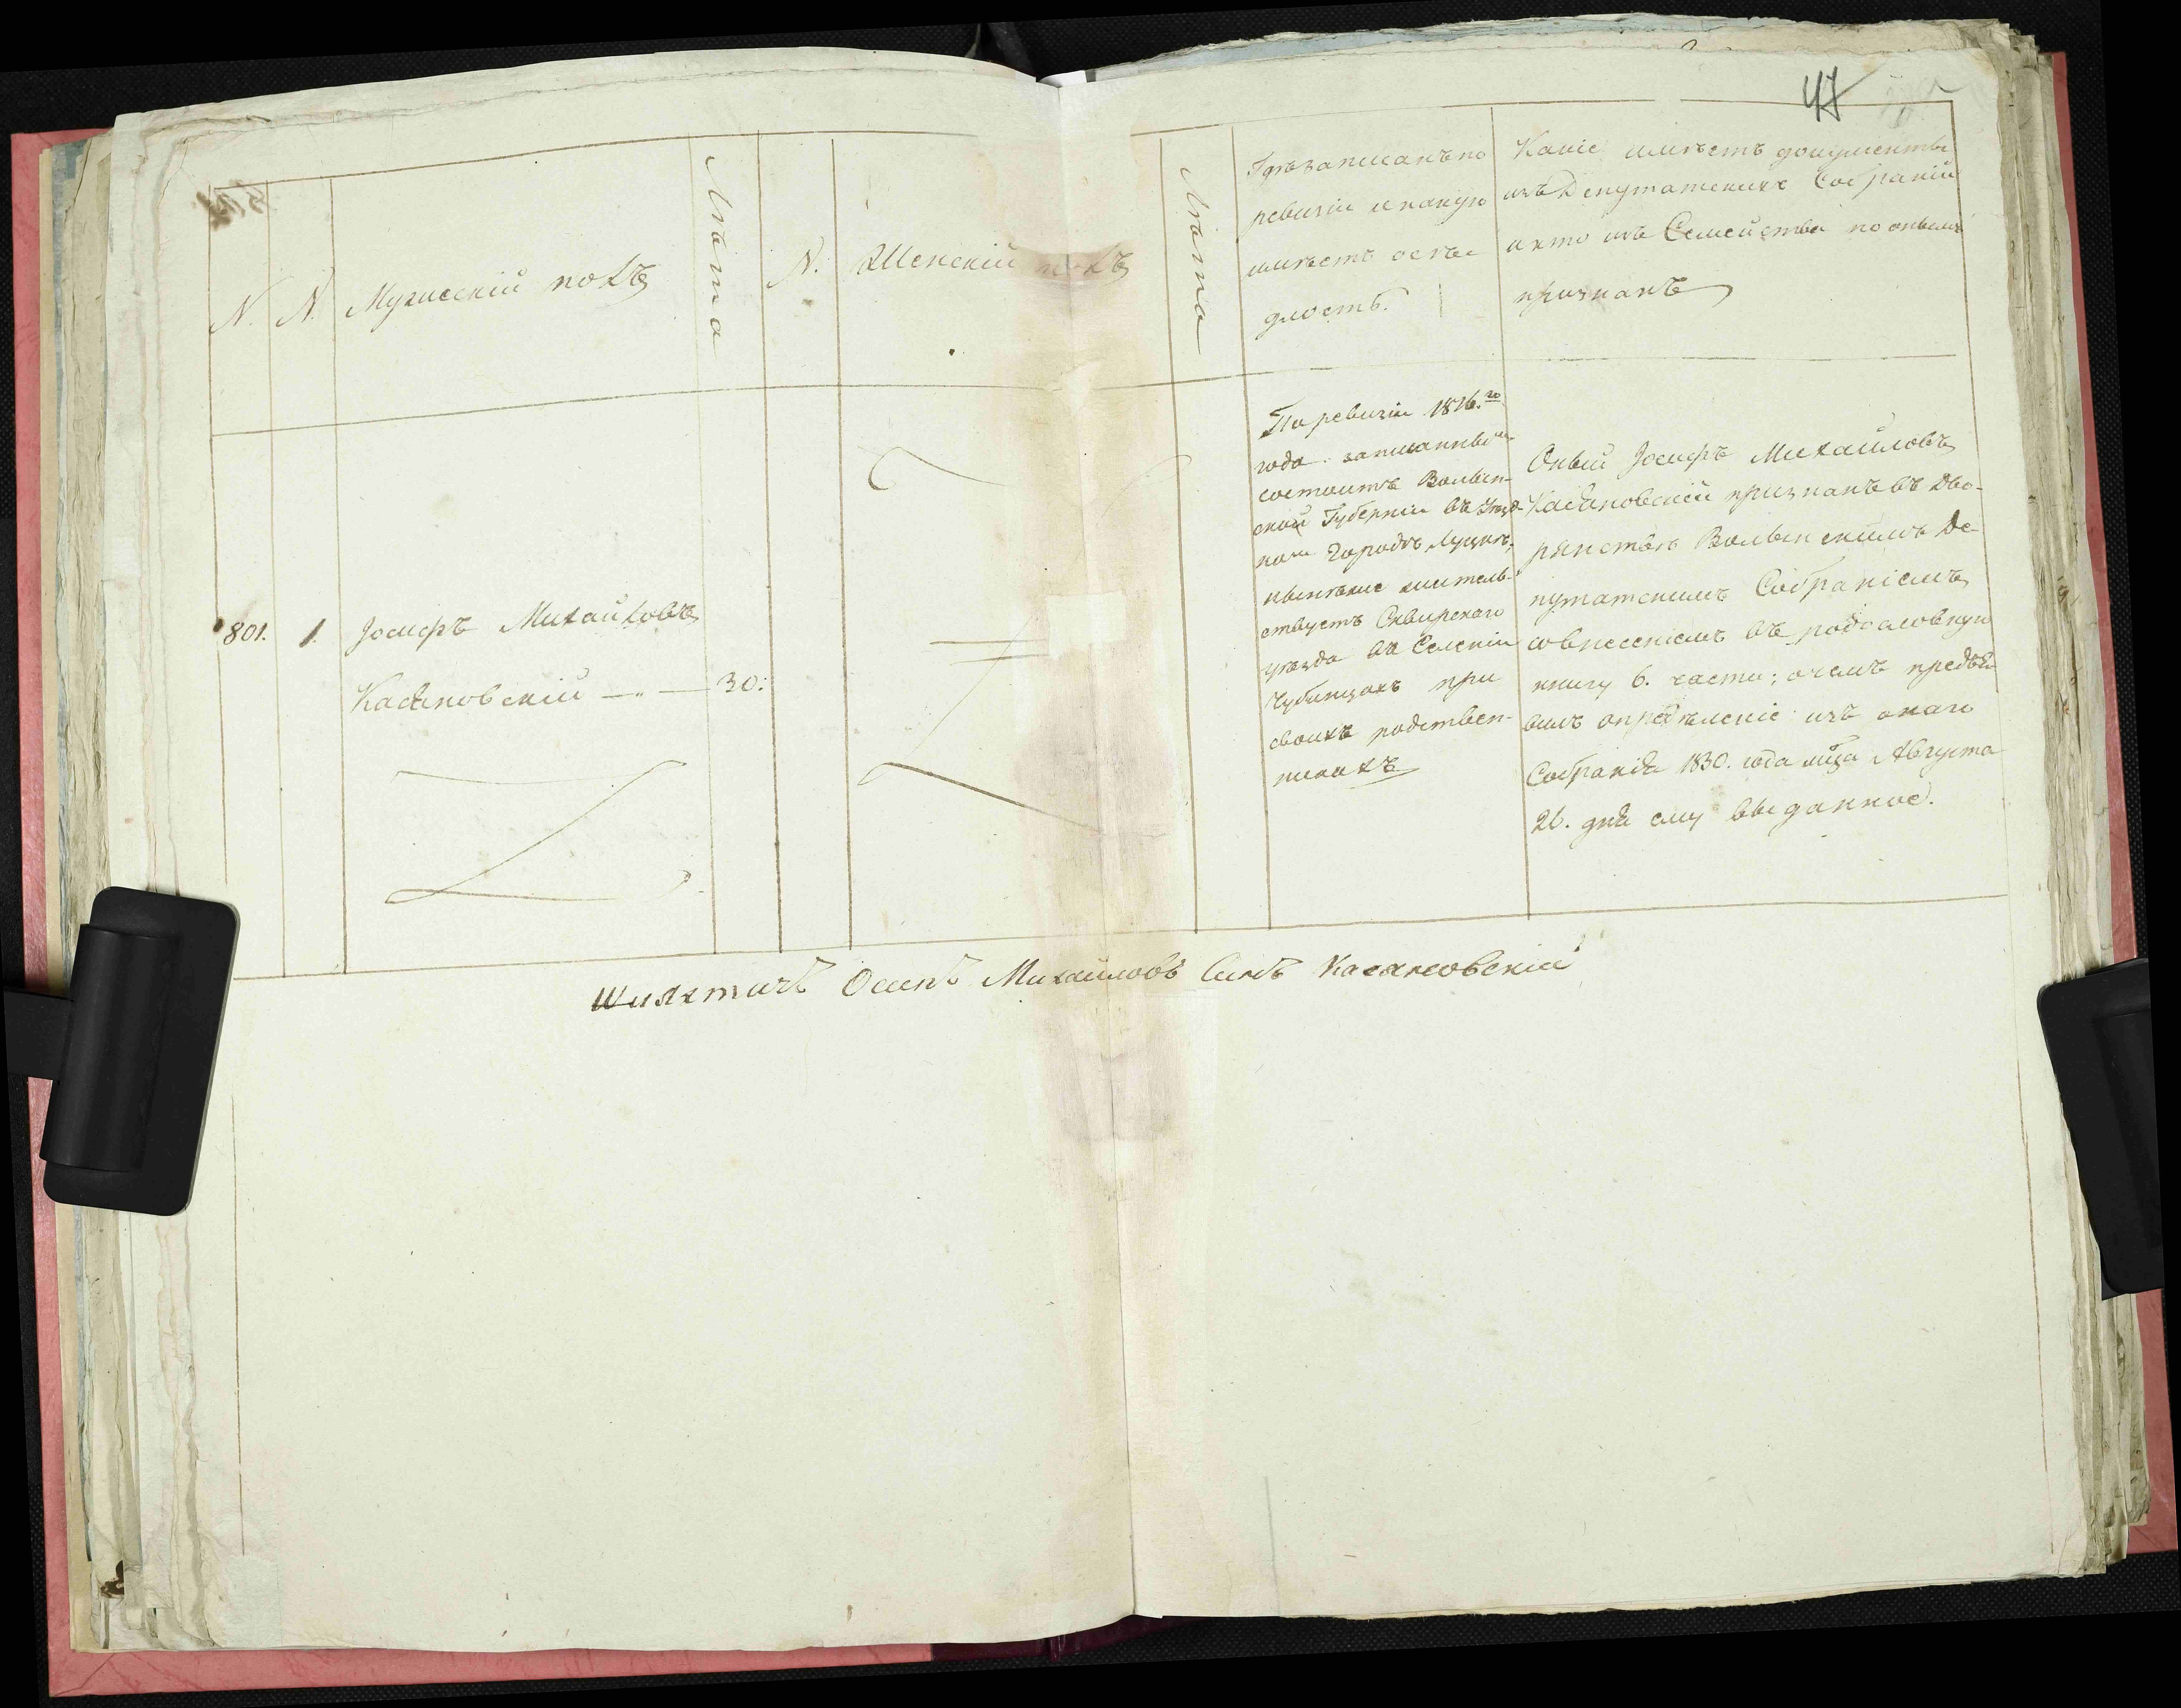 47
N.
N.
Мужескій полъ
Лѣта
N.
Женскій полъ
Лѣта
Гдѣ записанъ по
ревизіи и какую
имѣетъ осѣ-
длость.
Какіе имѣетъ документы
изъ Депутатскихъ Собраній
и кто изъ Семейства по онымъ
признанъ
801.
1.
Іосифъ Михайловъ
Касяновскій — „ — 30:
По ревизіи 1816.го
года записаннымъ
состоитъ Волын-
ской Губерніи въ Уѣзд-
номъ Городѣ Луцкѣ,
нынѣже житель-
ствуетъ Сквирскаго
уѣзда въ Селеніи
Чубинцахъ при
своихъ родствен-
никахъ
Оный Іосифъ Михайловъ
Касяновскій признанъ въ Дво-
рянствѣ Волынскимъ Де-
путатскимъ Собраніемъ
со внесеніемъ въ родословную
книгу 6. части; о чемъ предъя-
вилъ опредѣленіе изъ онаго
Собранія 1830. года мца Августа
26. дня ему выданное.
Шляхтичъ Осипъ Михайловъ Синъ Касяновскій